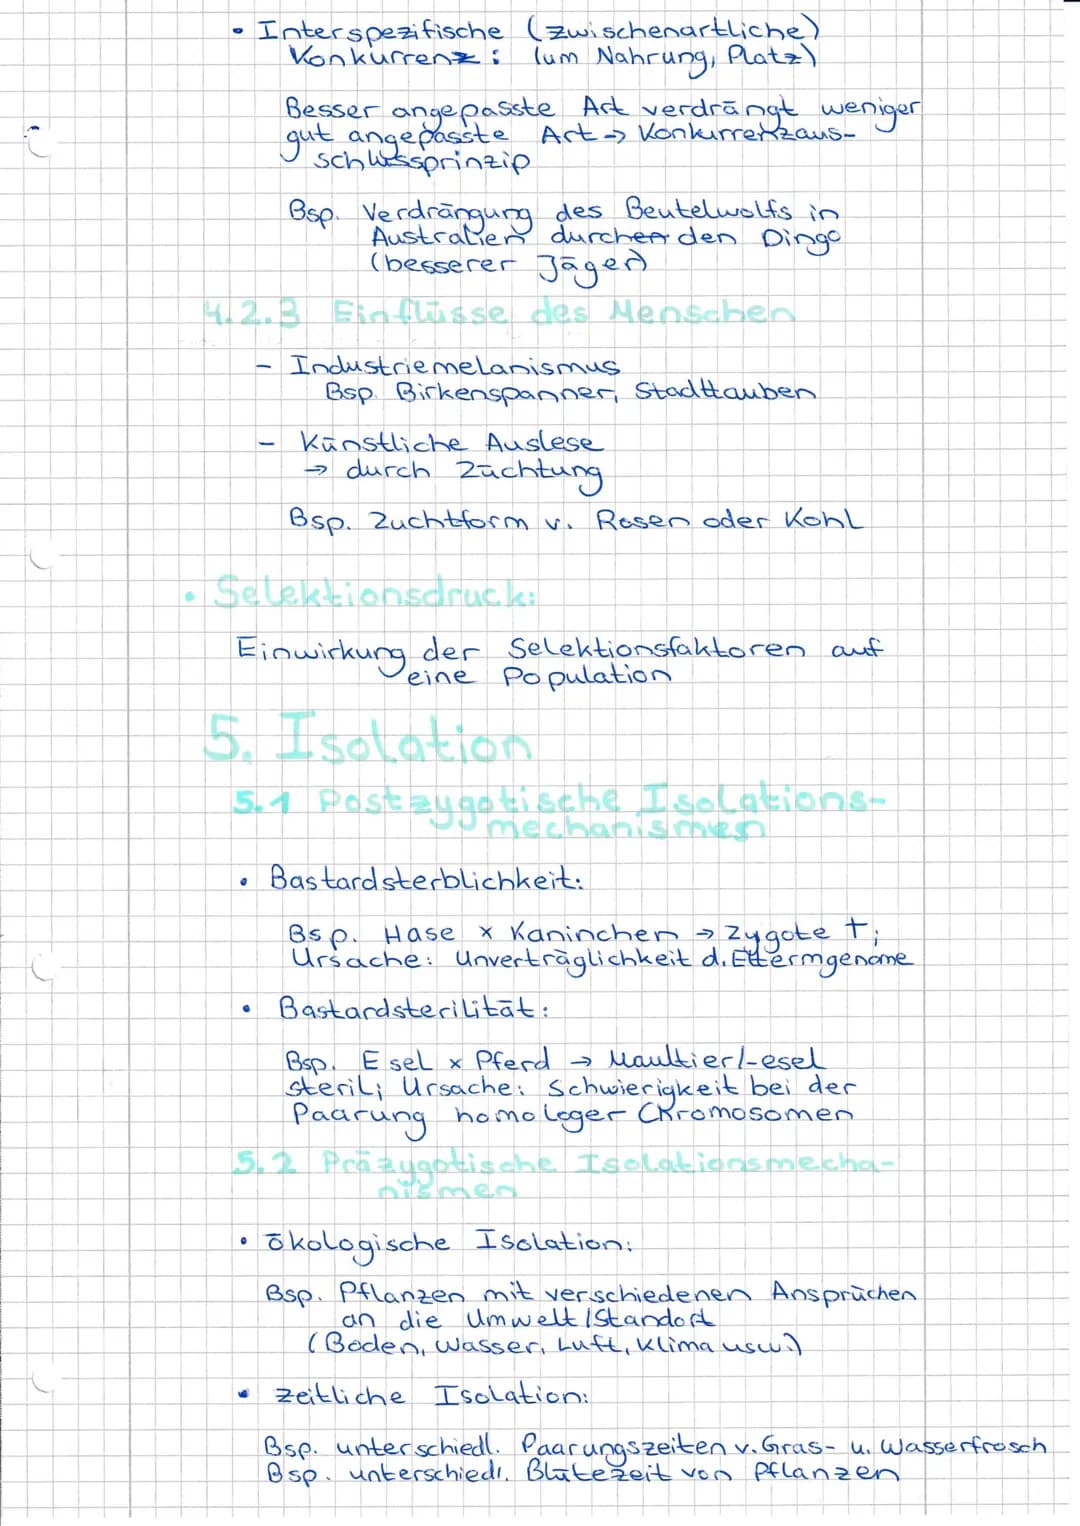 • Interspezifische (zwischenartliche)
Konkurrenz: (um Nahrung, Platz)
Besser angepasste Art verdrängt weniger
gut angepasste Art → Konkurrenzaus-
schlussprinzip
Bsp. Verdrängung des Beutelwolfs in
Australien durch den Dingo
(besserer Jäger)
4.2.3 Einflüsse des Menschen
- Industriemelanismus
Bsp. Birkenspanner, Stadttauben
- Künstliche Auslese
→ durch Züchtung
Bsp. Zuchtform v. Rosen oder Kohl
• Selektionsdruck:
Einwirkung der Selektionsfaktoren auf
eine Population
5. Isolation
5.1 Postzygotische Isolations-
mechanismen
• Bastardsterblichkeit:
Bsp. Hase x Kaninchen → Zygote †;
Ursache: Unverträglichkeit d.
• Bastardsterilität:
Bsp. Esel x Pferd → Maultier/-esel
steril; Ursache: Schwierigkeit bei der
Paarung homologer Chromosomen
5.2 Präzygotische Isolationsmecha-
nismen
• ökologische Isolation:
Bsp. Pflanzen mit verschiedenen Ansprüchen
an die Umwelt/Standort
(Boden, Wasser, Luft, Klima usw.)
• zeitliche Isolation:
Bsp. unterschiedl. Paarungszeiten v. Gras- u. Wasserfrosch
Bsp. unterschiedl. Blütezeit von Pflanzen